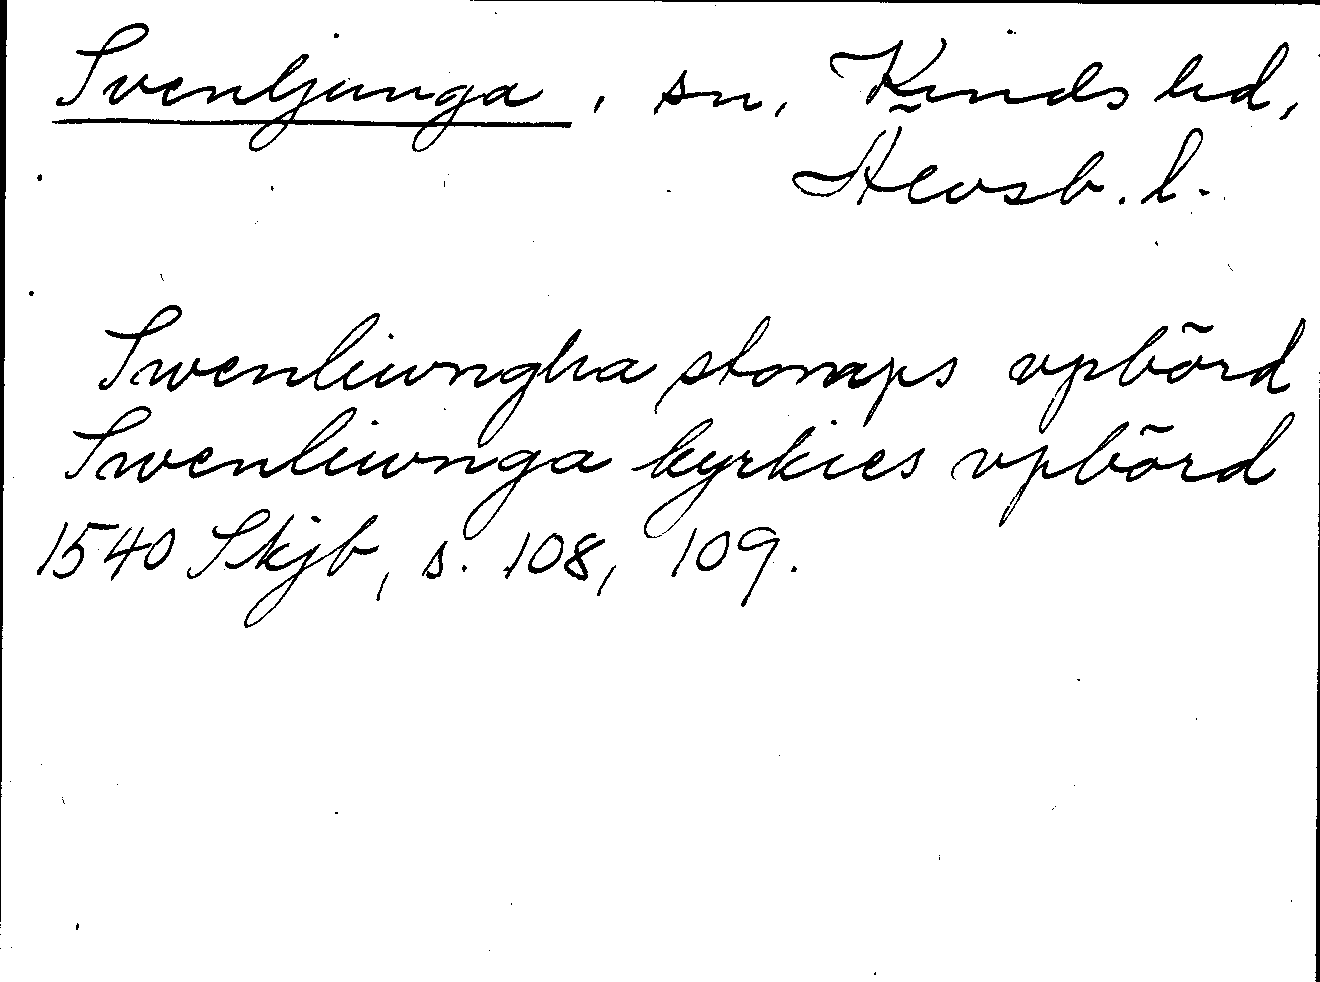 Svenljunga, sn, Kinds hd,
Älvsb. l.
Swenliwngha stomps vpbörd
Swenliwnga kyrkies vpbörd
1540 Skjb, s. 108, 109.